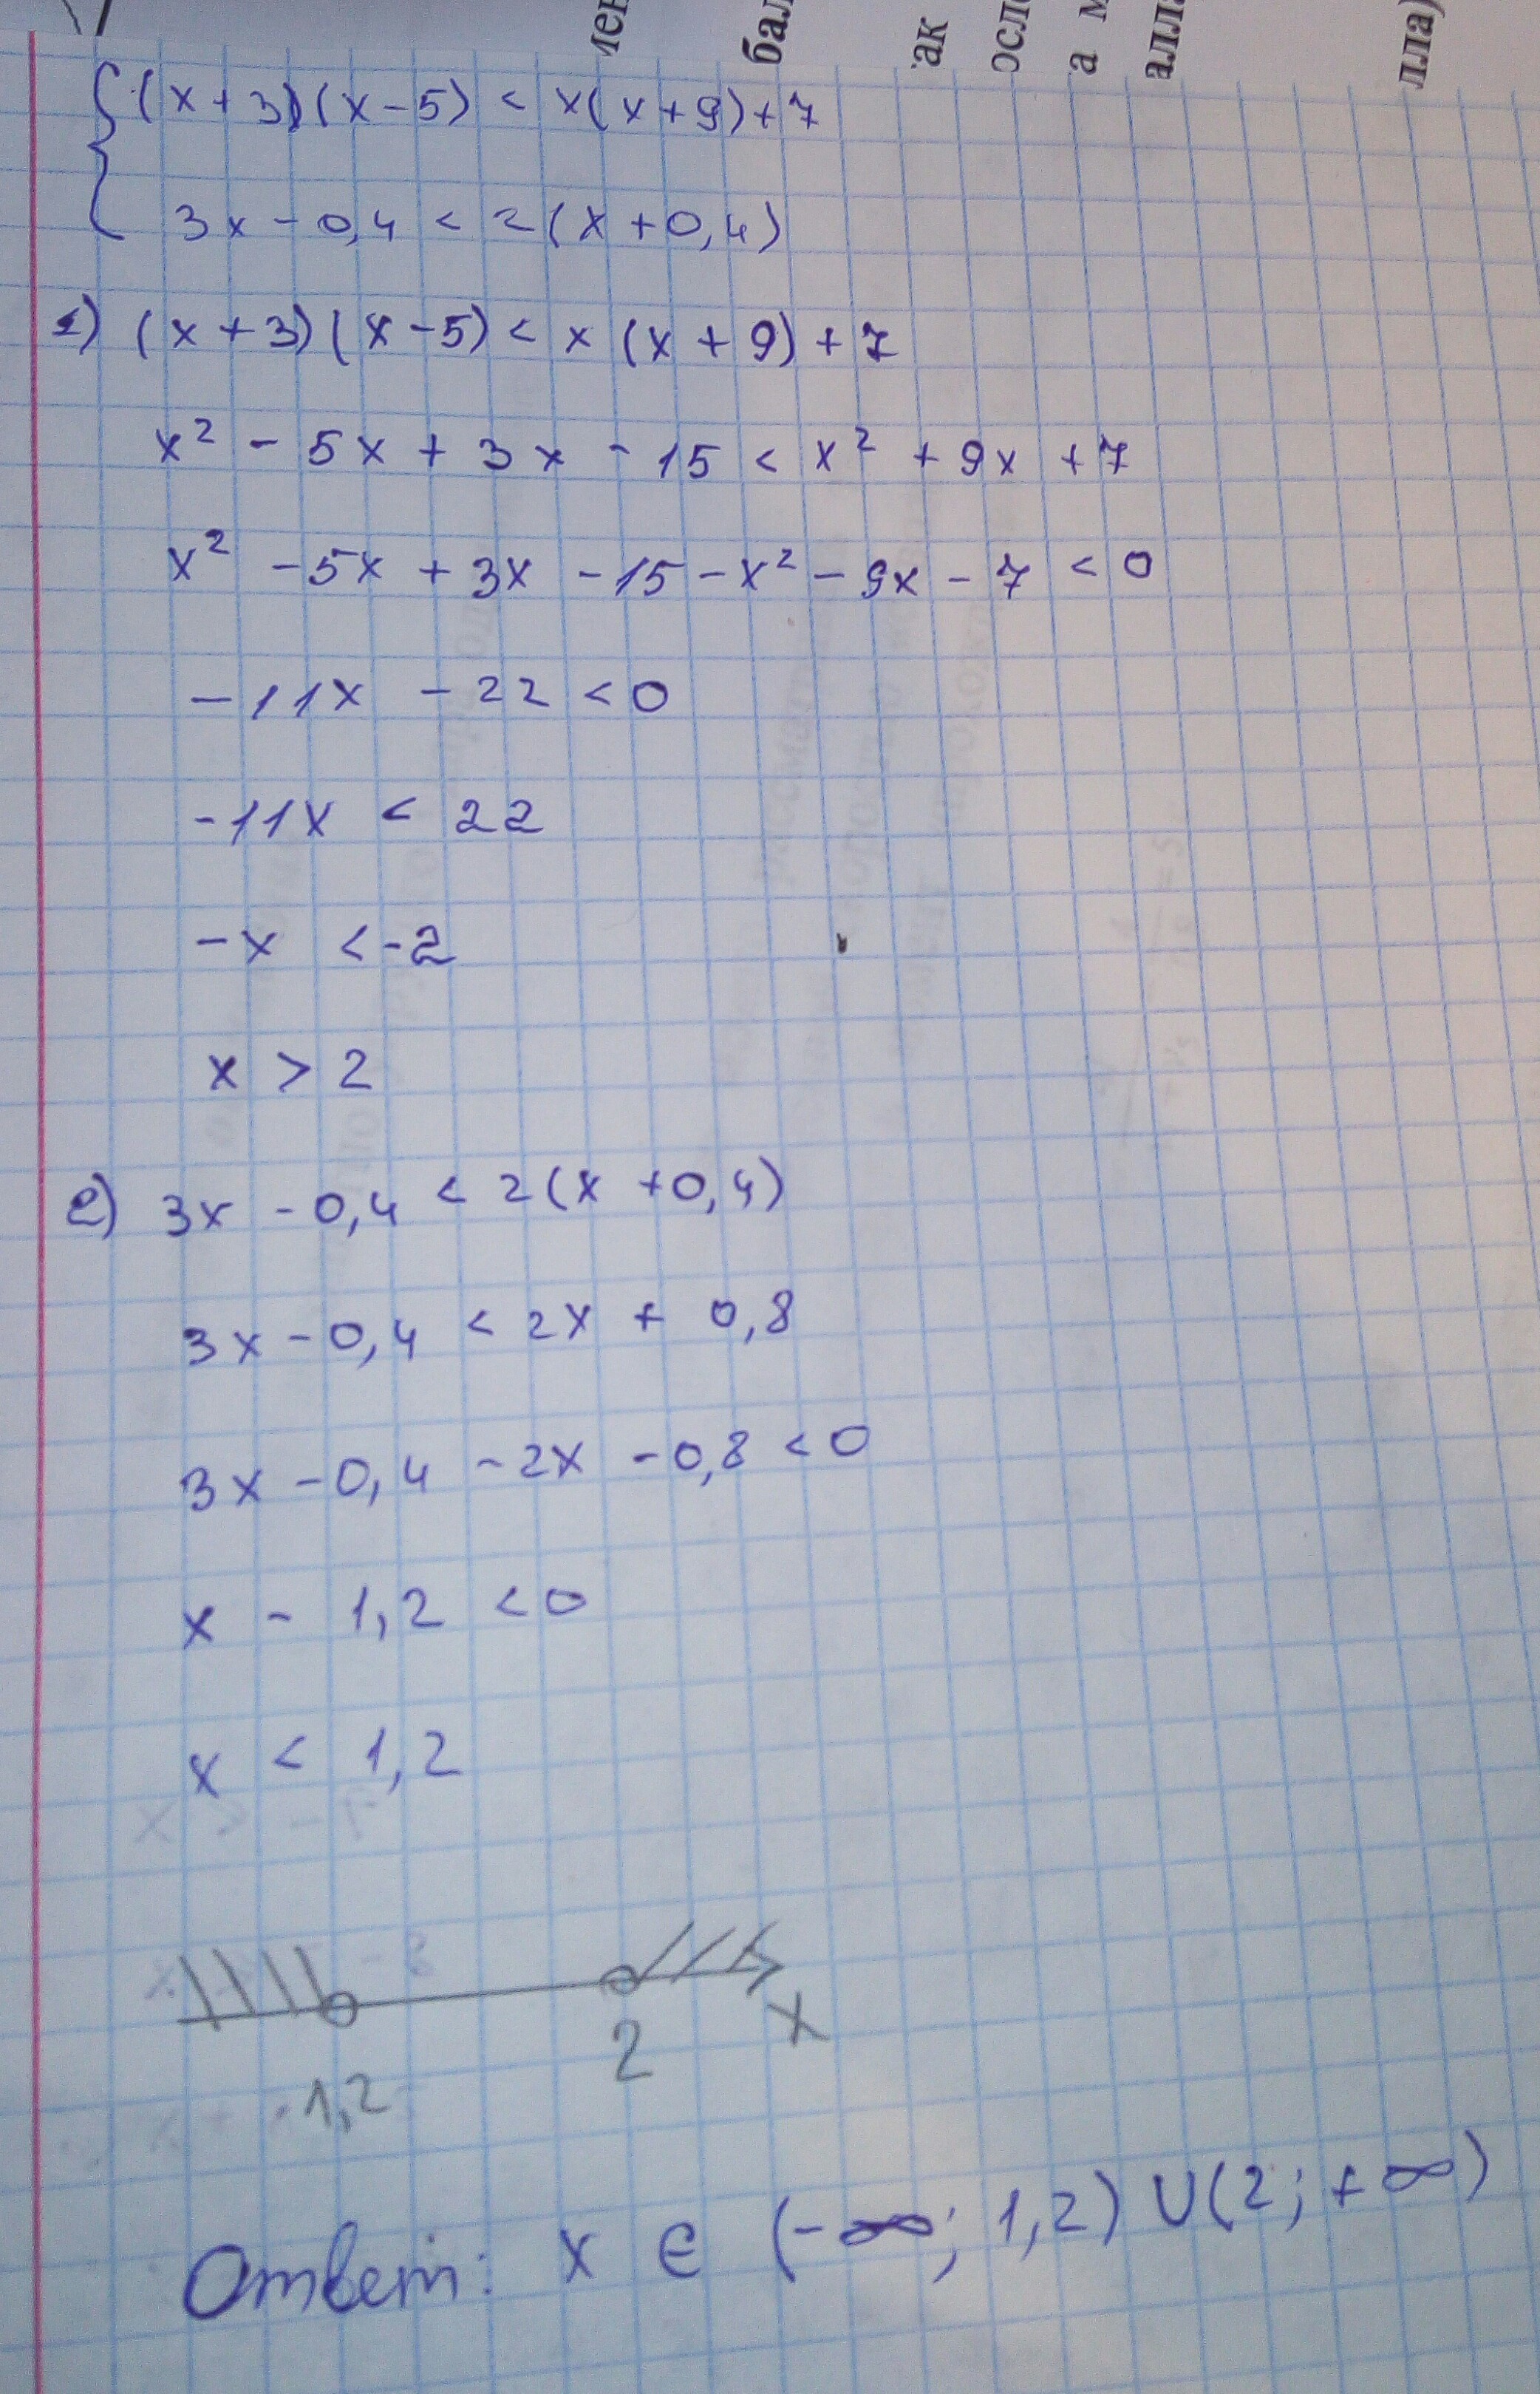 { (x+3)(x-5) < x(x+9)+7
3x-0,4 < 2(x+0,4)
1) (x+3)(x-5) < x(x+9)+7
x² - 5x + 3x - 15 < x² + 9x + 7
x² - 5x + 3x - 15 - x² - 9x - 7 < 0
-11x - 22 < 0
-11x < 22
-x < -2
x > 2
2) 3x - 0,4 < 2(x + 0,4)
3x - 0,4 < 2x + 0,8
3x - 0,4 - 2x - 0,8 < 0
x - 1,2 < 0
x < 1,2
1,2 2 x
Ответ: x ∈ (-∞; 1,2) ∪ (2; +∞)